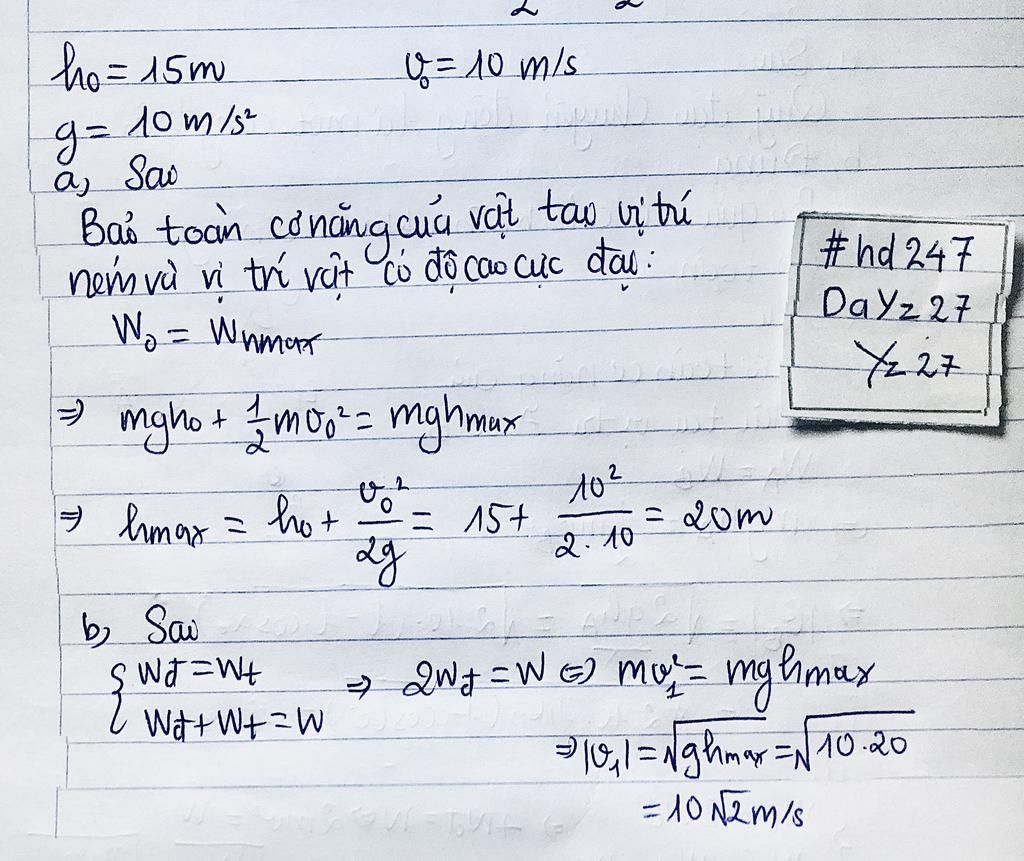 h₀ = 15m v₀ = 10 m/s
g = 10 m/s²
a, Sao
Bảo toàn cơ năng của vật tao vị trí
ném và vị trí vật có độ cao cực đại:
W₀ = Whmax
⇒ mgh₀ + 1/2 mv₀² = mghmax
⇒ hmax = h₀ + v₀²/2g = 15 + 10²/2·10 = 20m
b, Sao
{ Wđ = Wt
Wđ + Wt = W ⇒ 2Wđ = W ⇔ mv₁² = mghmax
⇒ |v₁| = √ghmax = √10·20
= 10√2 m/s
#hd247
DaYz27
Yz27